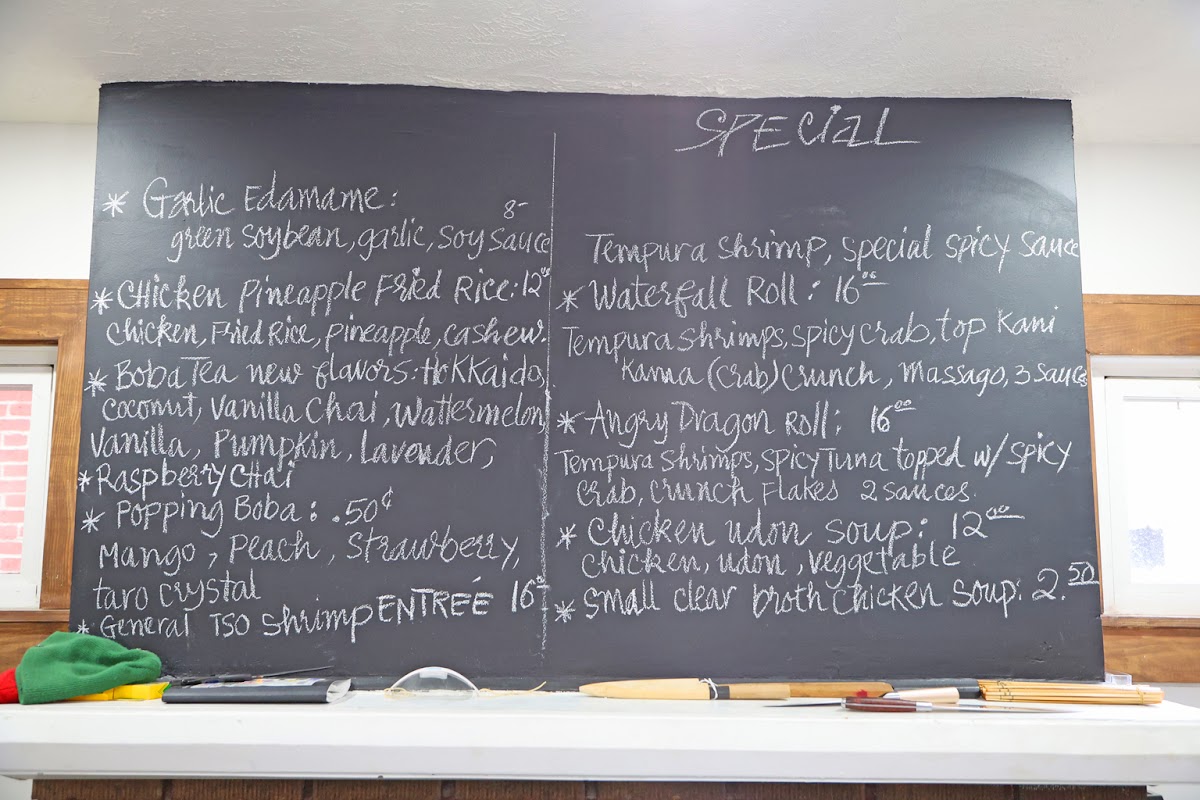 * Garlic Edamame:
8-
green soybean, garlic, soy sauce
* CHicken Pineapple Fried Rice: 12⁰⁰
chicken, Fried Rice, pineapple, cashew.
* Boba Tea new flavors: HoKKaido,
coconut, Vanilla Chai, Wattermelon,
Vanilla, Pumpkin, Lavender,
* Raspberry CHai
* Popping Boba: .50¢
Mango, Peach, Strawberry,
taro crystal
* General TSO Shrimp ENTREÉ 16⁰⁰
SPECiaL
Tempura Shrimp, special spicy sauce
* Waterfall Roll: 16⁰⁰
Tempura shrimps, spicy crab, top Kani
Kama (crab) crunch, Massago, 3 sauces
* Angry Dragon Roll: 16⁰⁰
Tempura shrimps, spicy Tuna topped w/ spicy
crab, crunch Flakes 2 sauces.
* Chicken udon soup: 12⁰⁰
chicken, udon, veggetable
* Small clear broth chicken soup: 2.50